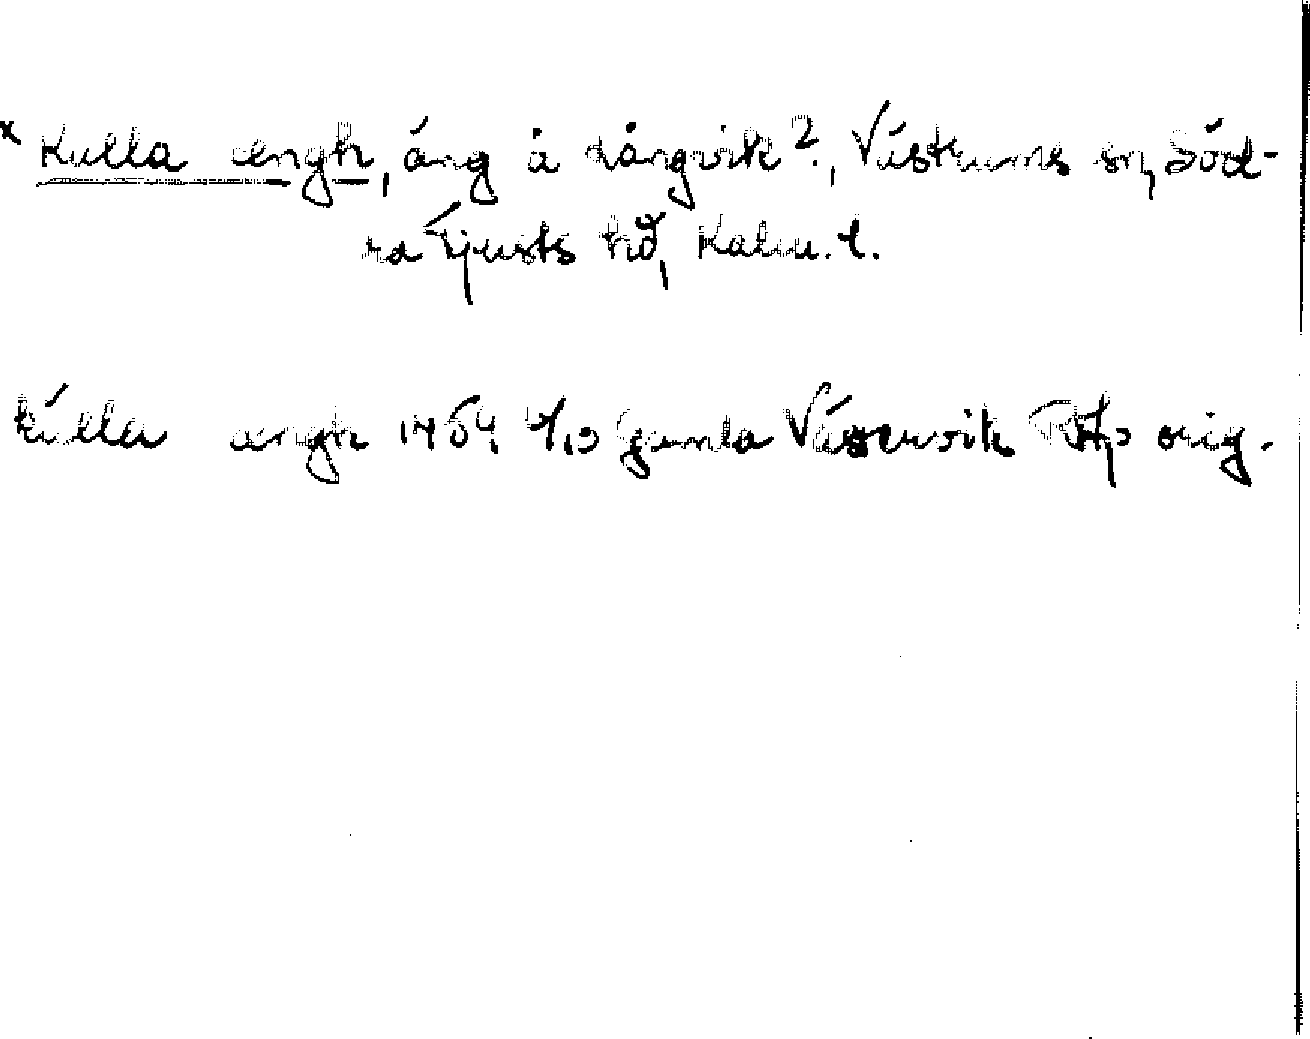 x Kullaængh, äng å Långvik?, Västrums sn, Söd-
ra Tjusts hd, Kalm. l.
kulla ængh 1464 4/10 Gamla Västervik RAp orig.